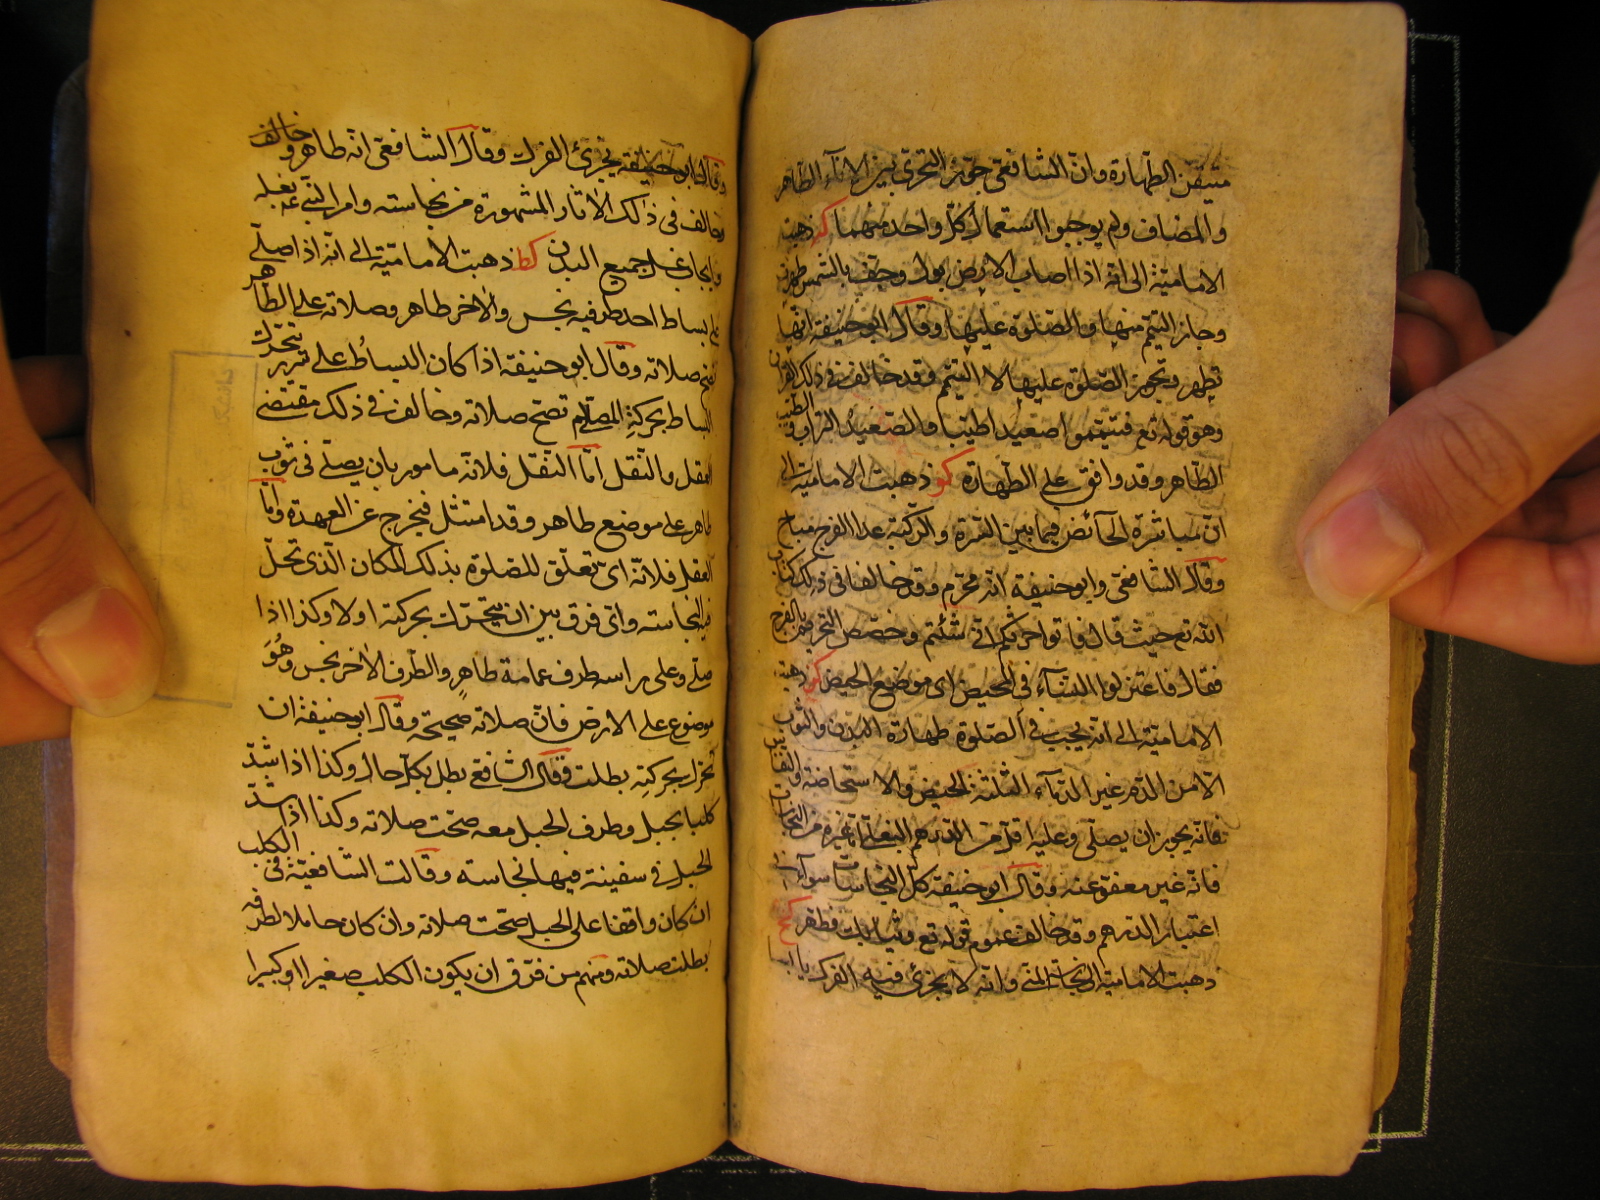 متيقن الطهارة وان الشافعي جوز التحري بين الاناء الطاهر
والمضاف ولم يوجبوا استعمال كل واحد منهما كه ذهبت
الامامية الى انه اذا اصاب الارض بول وجف بالشمس طهرت
وجاز التيمم منها والصلوة عليها وقال ابو حنيفة انها
تطهر وتجوز الصلوة عليها لا التيمم وقد خالف في ذلك القران
وهو قوله تع فتيمموا صعيدا طيبا والصعيد التراب والطيب
الطاهر وقد وافق على الطهارة كو ذهبت الامامية الى
ان مباشرة الحائض فيما بين السرة والركبة عدا الفرج مباح
وقال الشافعي وابو حنيفة انه محرم وقد خالفا في ذلك كتاب
الله تع حيث قال فاتوا حرثكم انى شئتم وخصص التحريم بالفرج
فقال فاعتزلوا النساء في المحيض اى موضع الحيض كز ذهبت
الامامية الى انه يجب في الصلوة طهارة البدن والثوب
الا من الدم غير الدماء الثلثة الحيض والاستحاضة والنفاس
فانه يجوز ان يصلى وعليه اقل من الدرهم البغلي اما غيره من النجاسات
فانه غير معفو عنه وقال ابو حنيفة كل النجاسات سواء في
اعتبار الدرهم وقد خالف عموم قوله تع وثيابك فطهر كح
ذهبت الامامية الى نجاسة المنى وانه لا يجزئ فيه الفرك يابسا
وقال ابو حنيفة يجزئ الفرك وقال الشافعي انه طاهر وخالف
وخالف في ذلك الاثار المشهورة من نجاسته وامر النبي ع بغسله
وايجاب غسل جميع البدن كط ذهبت الامامية الى انه اذا صلى
على بساط احد طرفيه نجس والاخر طاهر وصلاته على الطاهر
تصح صلاته وقال ابو حنيفة اذا كان البساط على سرير يتحرك
البساط بحركة المصلى لم تصح صلاته وخالف في ذلك مقتضى
العقل والنقل اما النقل فلانه مامور بان يصلى في ثوب
طاهر على موضع طاهر وقد امتثل فيخرج عن العهدة واما
العقل فلانه اى تعلق للصلوة بذلك المكان الذى تحل
فيه النجاسة واى فرق بين ان يتحرك بحركته او لا وكذا اذا
صلى وعلى راسه طرف عمامة طاهر والطرف الاخر نجس وهو
موضوع على الارض فان صلاته صحيحة وقال ابو حنيفة ان
تحرك بحركته بطلت وقال الشافعي بطل بكل حال وكذا اذا شد
كلبا بحبل وطرف الحبل معه صحت صلاته وكذا اذا شد
الحبل في سفينة فيها نجاسة وقالت الشافعية في الكلب
ان كان واقفا على الحبل صحت صلاته وان كان حاملا لطرفه
بطلت صلاته ومنهم من فرق ان يكون الكلب صغيرا او كبيرا